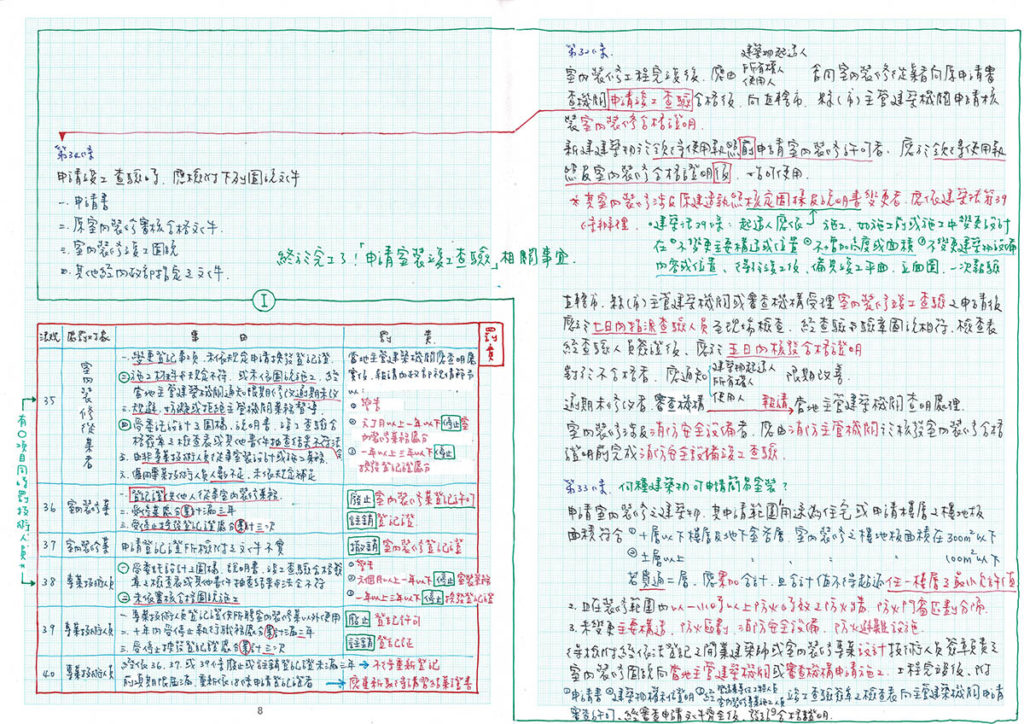 第34條
申請竣工查驗時,應檢附下列圖說文件
一.申請書
二.原室內裝修審核合格文件.
三.室內裝修竣工圖說
四.其他經內政部指定之文件.
終於完工了!「申請室裝竣工查驗」相關事宜
I
罰責
法規 處罰對象 集 目 罰 責
35
室內裝修業者
一.變更登記事項,未依規定申請換發登記證
二 施工材料與規定不符,或未依圖說施工,經
當地主管建築機關通知限期修改逾期未改
三.規避、妨礙或拒絕主管機關業務督導
四 受委託設計之圖樣、說明書、竣工查驗合
格簽章之檢查表或其他書件抽查結果不符法令
5.由非專業技術人員從事室內裝修設計或施工業務.
6.僱用專業技術人員人數不足,未依規定補足
當地主管建築機關應查明屬
實後,報請內政部視情節予
以:
警告
六個月以上一年以下停止室
內裝修業務處分
一年以上三年以下停止
換發登記證處分
有○項目同時罰技術人員
36 室內裝修業
一.登記證供他人從事室內裝修業務.
二.受停業處分累計滿三年
三.受停止換發登記證處分累計三次
廢止室內裝修業登記許可
註銷登記證
37 室內裝修業 申請登記證所檢附之文件不實 撤銷室內裝修登記證
38 專業技術人員
一 受委託設計之圖樣、說明書、竣工查驗合格簽
章之檢查表或其他書件抽查結果與法令不符
二 未依審核合格圖說施工
警告
六個月以上一年以下停止室裝業務
一年以上三年以下停止換發登記證
39 專業技術人員
一.專業技術人員登記證供所聘室內裝修業以外使用
二.十年內受停止執行職務處分累計滿三年
三.受停止換發登記證處分累計三次
廢止登記許可
註銷登記證
40 專業技術人員
經依36、37、或39條廢止或註銷登記證未滿三年→不得重新登記
前項期限屆滿,重新依18條申請登記證者→應重新取得講習結業證書
8
第32條.
室內裝修工程完竣後,應由 建築物起造人 所有權人 使用人 會同室內裝修從業者向原申請審
查機關申請竣工查驗合格後,向直轄市、縣(市)主管建築機關申請核
發室內裝修合格證明.
新建建築物於領得使用執照前申請室內裝修許可者,應於領得使用執
照及室內裝修合格證明後,始可使用.
*其室內裝修涉及原建造執照核定圖樣及說明書變更者,應依建築法第39
條辦理. 建築法39條:起造人應依 施工,如施工前或施工中變更設計
在 不變更主要構造或位置 不增加高度或面積 不變更建築物設備
內容或位置、得於竣工後,備具竣工平面、立面圖,一次報驗
直轄市、縣(市)主管建築機關或審查機構受理室內裝修竣工查驗之申請後
應於七日內指派查驗人員至現場檢查,經查驗與驗章圖說相符,檢查表
經查驗人員簽證後、應於五日內核發合格證明
對於不合格者,應通知 建築物起造人 所有權人 使用人 限期改善.
逾期未修改者,審查機構 報請當地主管建築機關查明處理.
室內裝修涉及消防安全設備者,應由消防主管機關於核發室內裝修合格
證明前完成消防安全設備竣工查驗.
第33條. 何種建築物可申請簡易室裝?
申請室內裝修之建築物,其申請範圍用途為住宅或申請樓層之樓地板
面積符合 十層以下樓層及地下室各層,室內裝修之樓地板面積在300m²以下
十一層以上 〃 100m²以下
若貫通二層,應累加合計,且合計值不得超過任一樓層之最小允許值
2.且在裝修範圍內以一小時以上防火時效之防火牆,防火門窗區劃分隔.
3.未變更主要構造,防火區劃,消防安全設備,防火避難設施.
得檢附經依法登記之開業建築師或室內裝修專業設計技術人員簽章負責之
室內裝修圖說向當地主管建築機關或審查機構申請施工. 工程完竣後,附
申請書 建築物權利證明 經 竣工查驗簽章之檢查表向主管建築機關申請
審查許可,經審查申請文件齊全後,發給合格證明.